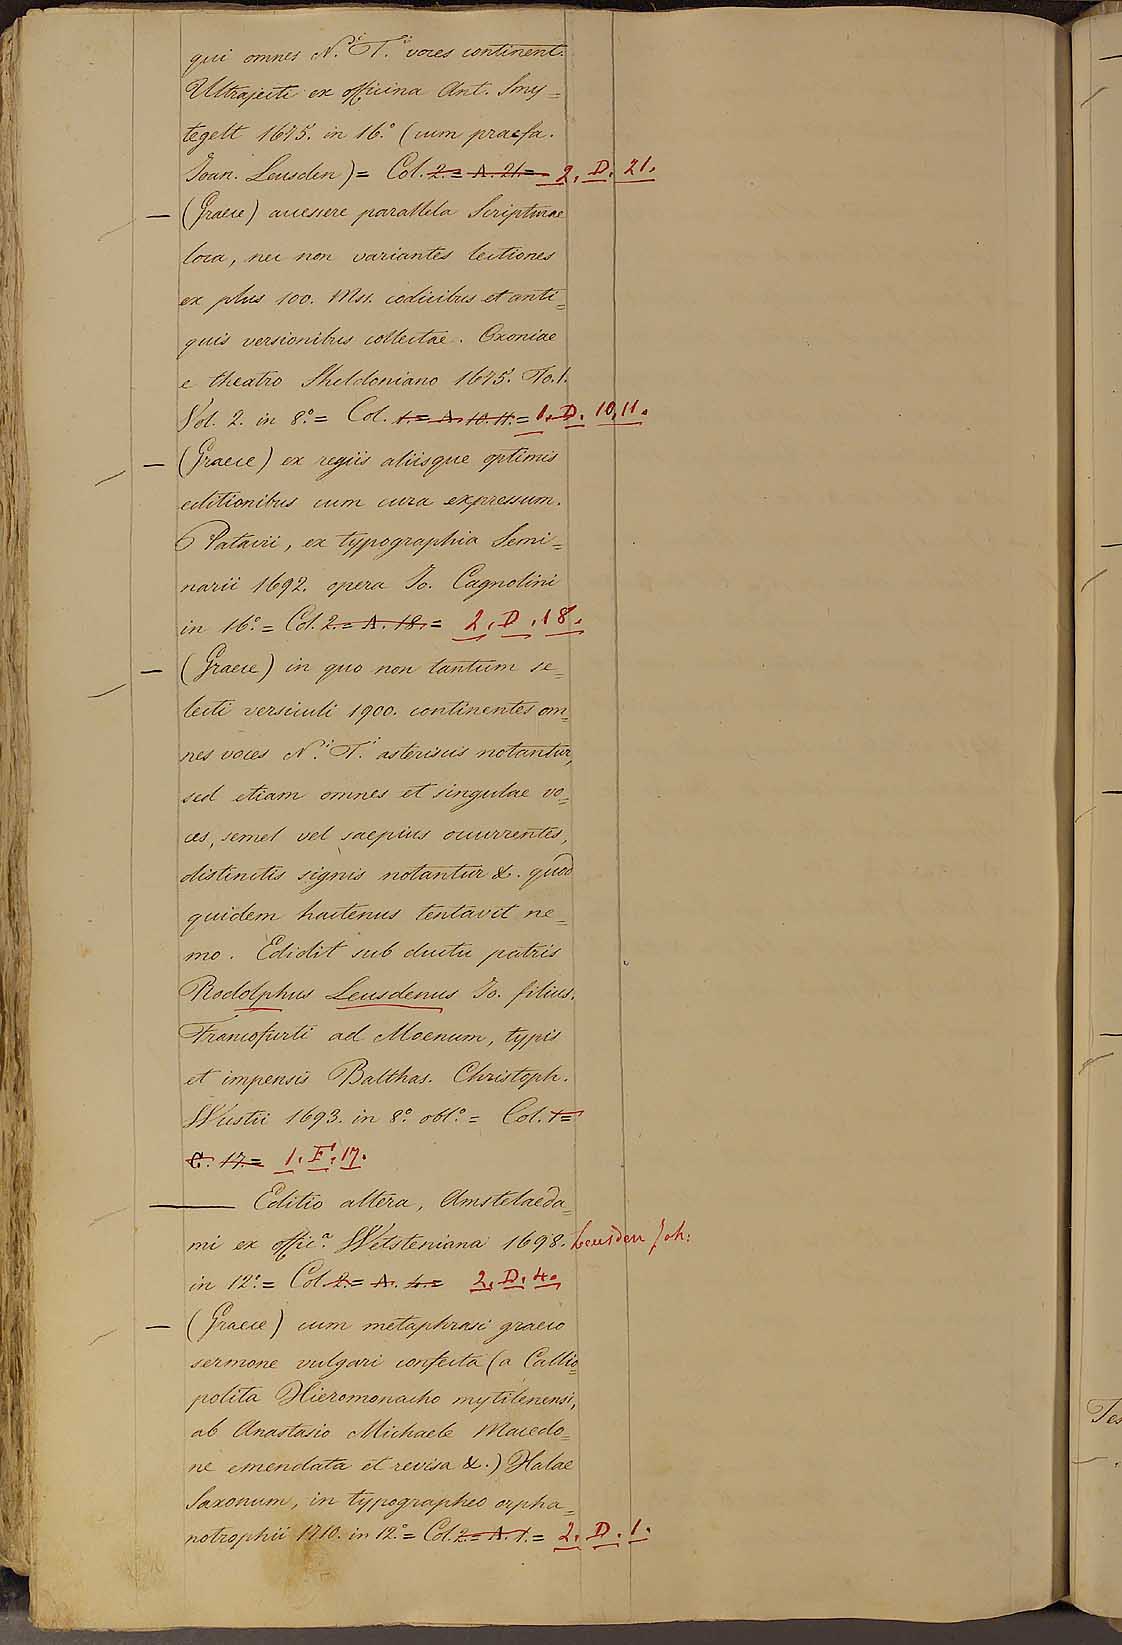 qui omnes N.i T.i voces continent.
Ultrajecti ex officina Ant. Smy=
tegelt 1675. in 16.o (cum praefa.
Joan. Leusden) = Col. 2.= A. 21.= 2. D. 21.
— (Graece) accessere parallela Scripturae
loca, nec non variantes lectiones
ex plus 100. Mss. codicibus et anti=
quis versionibus collectae. Oxoniae
e theatro Sheldoniano 1675. To. 1.
Vol. 2. in 8.o = Col. 1.= A. 10. 11.= 1. D. 10, 11.
— (Graece) ex regiis aliisque optimis
editionibus cum cura expressum.
Patavii, ex typographia Semi=
narii 1692. opera Jo. Cagnolini
in 16.o = Col. 2.= A. 18.= 2. D. 18.
— (Graece) in quo non tantum se=
lecti versiculi 1900. continentes om=
nes voces N.i T.i asteriscis notantur,
sed etiam omnes et singulae vo=
ces, semel vel saepius occurrentes,
distinctis signis notantur &. quod
quidem hactenus tentavit ne=
mo. Edidit sub ductu patris
Rodolphus Leusdenus Jo. filius.
Francofurti ad Moenum, typis
et impensis Balthas. Christoph.
Wustii 1693. in 8.o obl.o = Col. 1=
C. 17.= 1. F. 17.
— Editio altera, Amstelaeda=
mi ex offic.a Wetsteniana 1698. Leusden Joh:
in 12.o = Col. 2.= A. 4.= 2. D. 4.
— (Graece) cum metaphrasi graeco
sermone vulgari confecta (a Callio=
polita Hieromonacho mytilenensi,
ab Anastasio Michaele Macedo=
ne emendata et revisa &.) Halae
Saxonum, in typographeo orpha=
notrophii 1710. in 12.o = Col. 2.= A. 1.= 2. D. 1.
Tes